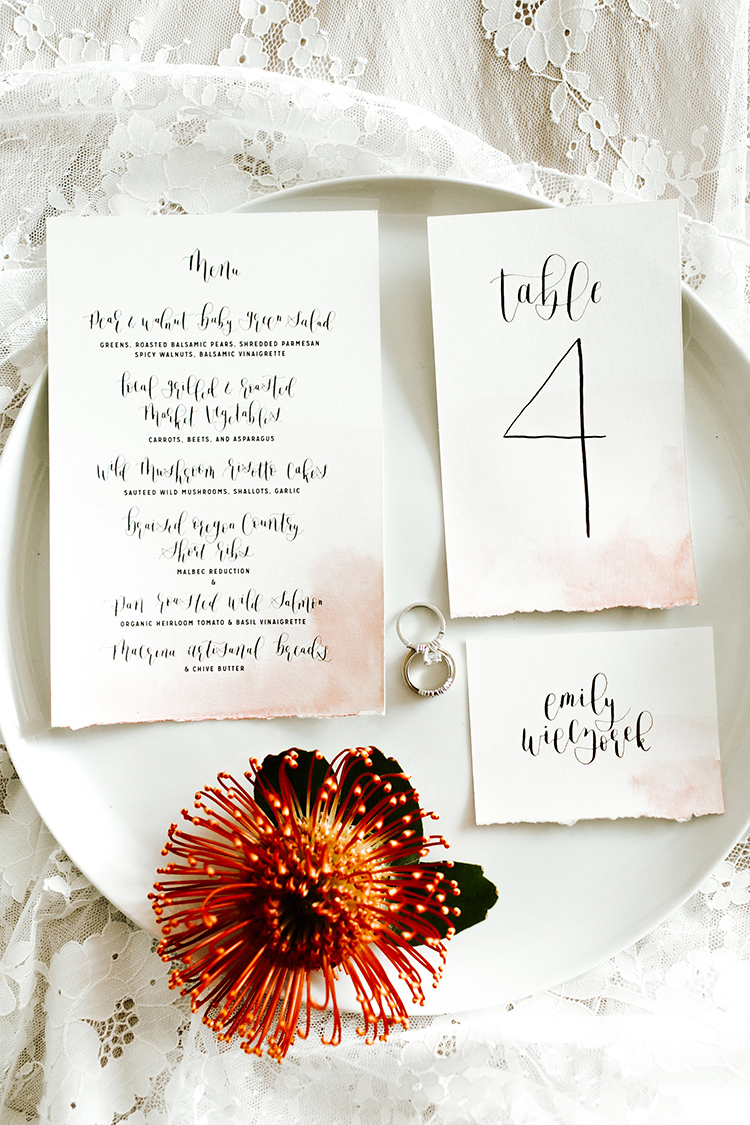 Menu
Pear & walnut baby green Salad
GREENS, ROASTED BALSAMIC PEARS, SHREDDED PARMESAN
SPICY WALNUTS, BALSAMIC VINAIGRETTE
local grilled & roasted
Market Vegetables
CARROTS, BEETS, AND ASPARAGUS
Wild Mushroom risotto Cakes
SAUTEED WILD MUSHROOMS, SHALLOTS, GARLIC
braised oregon Country
Short ribs
MALBEC REDUCTION
&
Pan roasted Wild Salmon
ORGANIC HEIRLOOM TOMATO & BASIL VINAIGRETTE
Macrina artisanal breads
& CHIVE BUTTER
table
4
emily
wieczorek